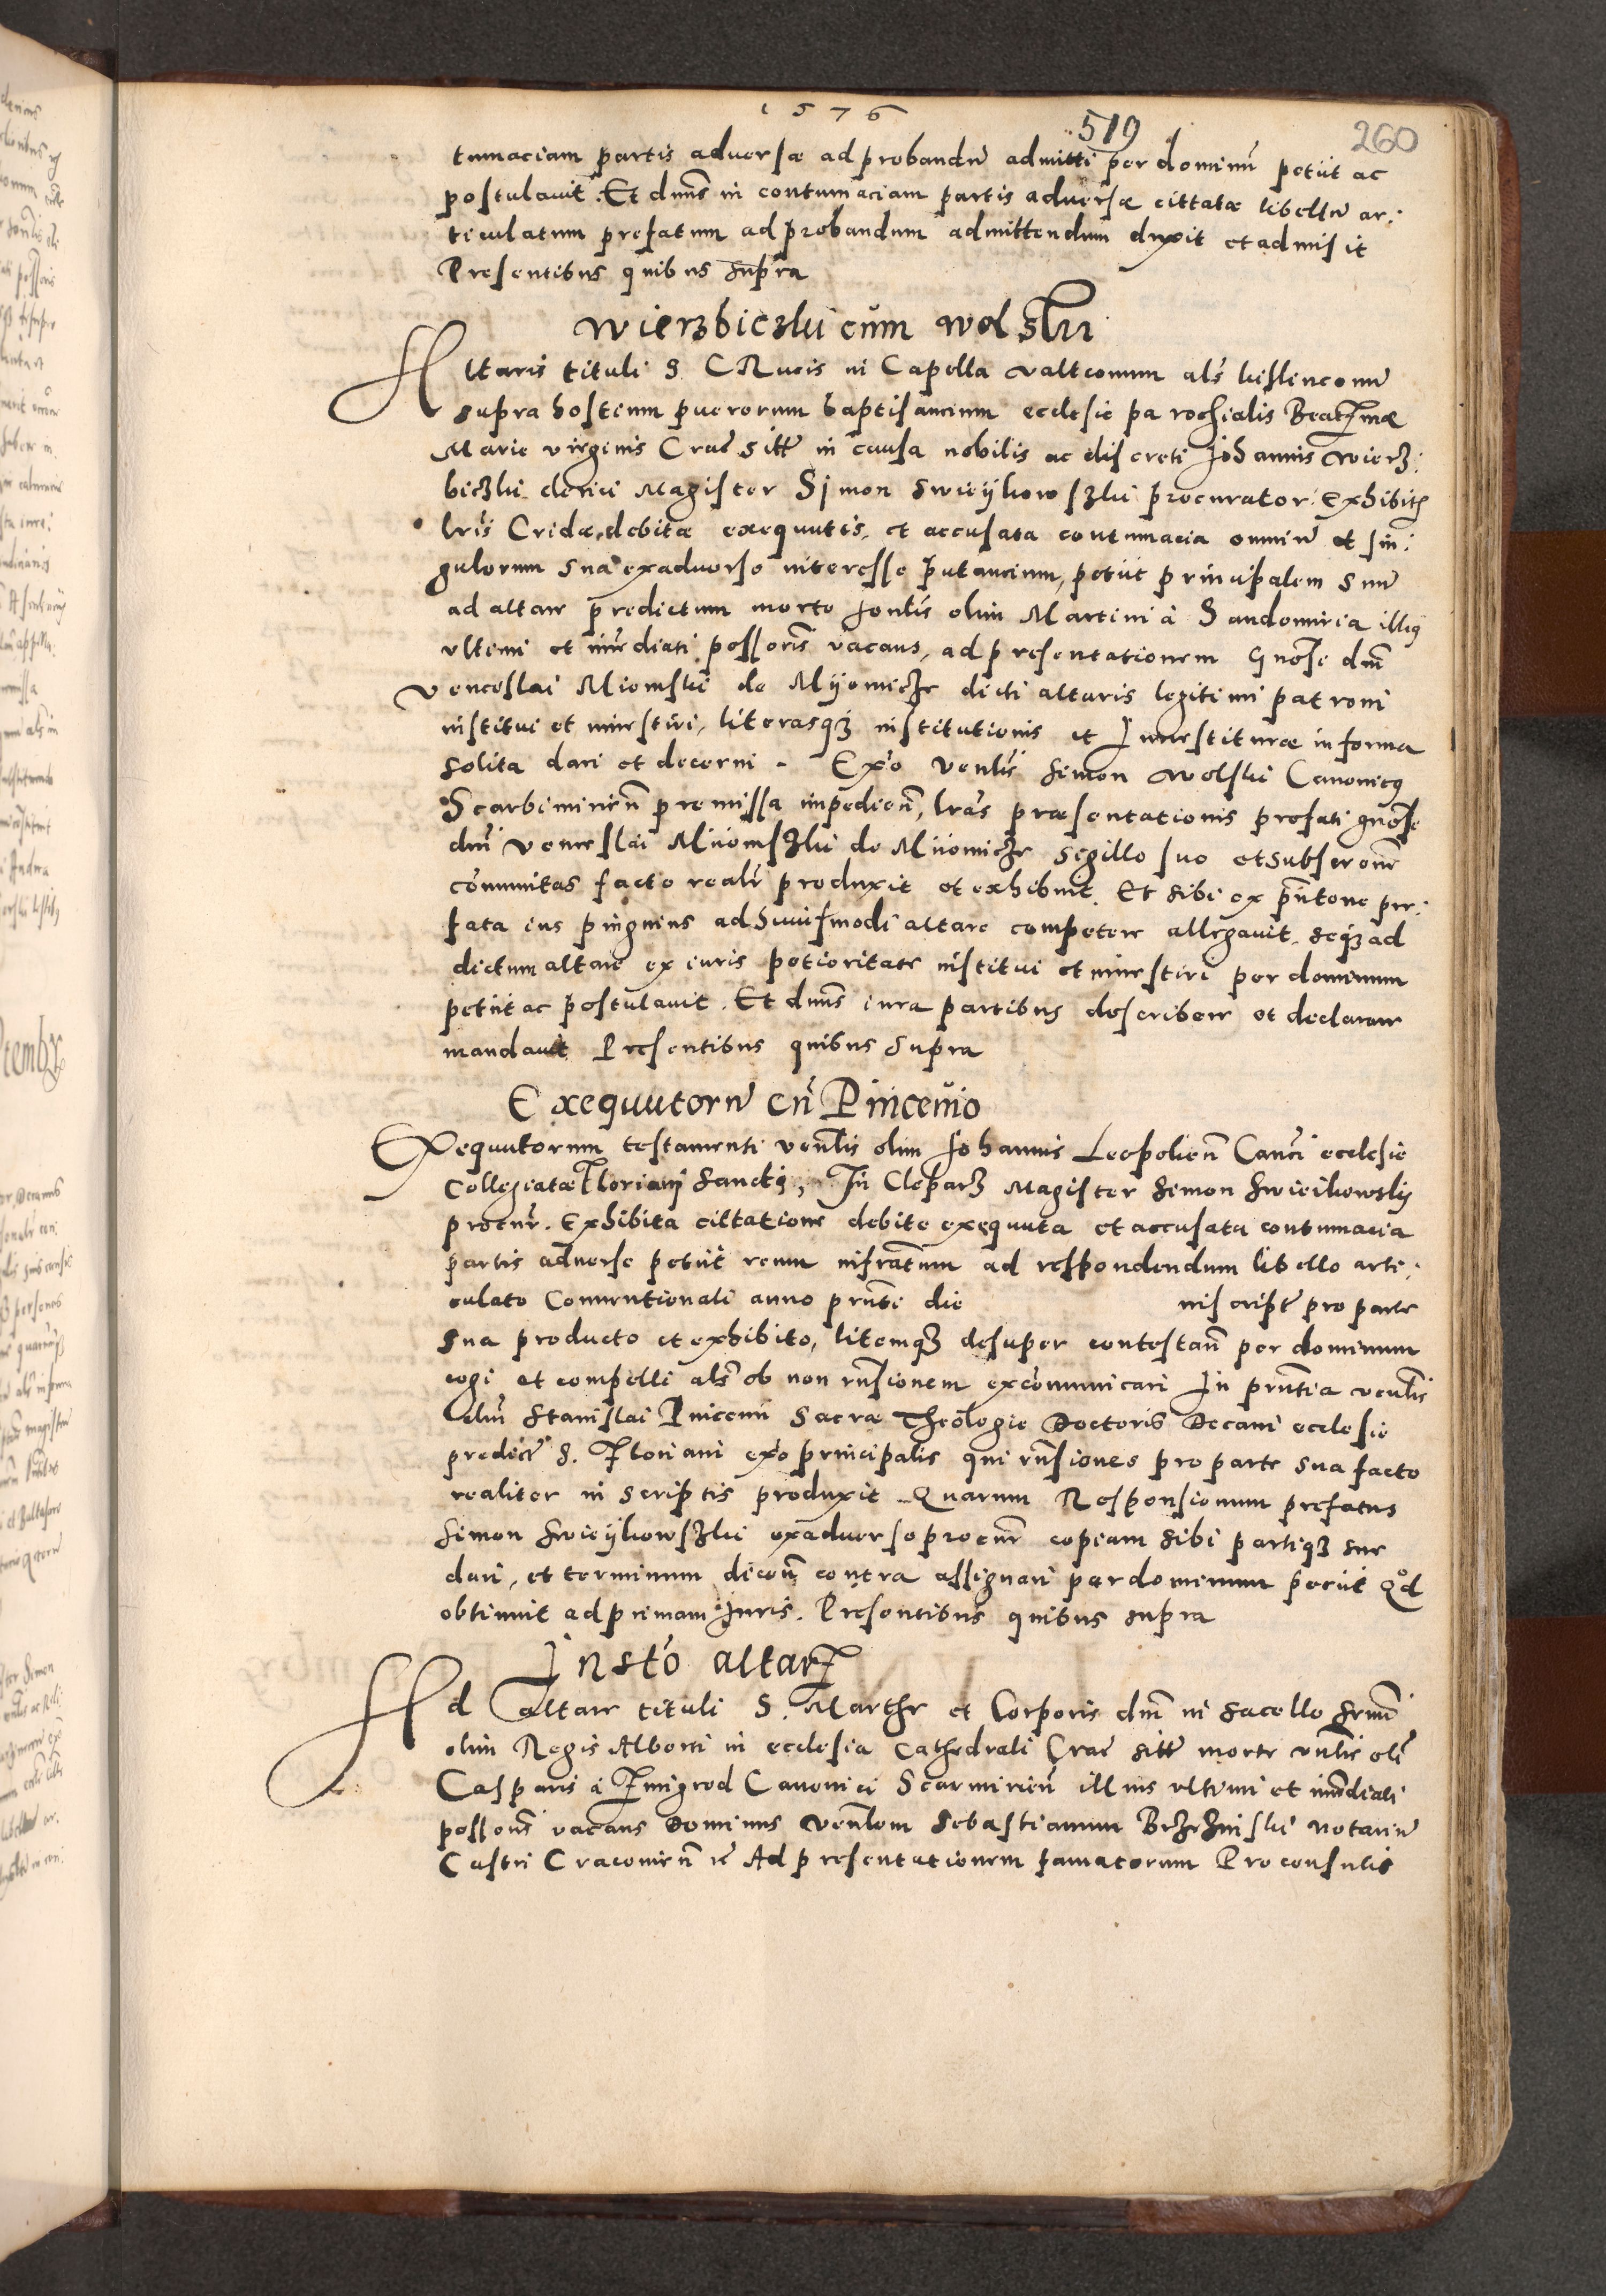 1576
519
260
tumaciam partis adversæ ad probandũ admitti per dominũ petiit ac
postulavit. Et dn̄s in contumaciam partis adversæ cittatæ libellũ ar:
ticulatum prefatum ad probandum admittendum duxit et admisit
Presentibus quibus supra
Wierzbiczki cum Wolski
Altaris tituli S. CRucis in Capella valteonum als̄
supra hostium puerorum baptisancium ecclesie parochialis Beatæ
Marie virginis Crac̄ sittĩ in causa nobilis ac discreti Johannis Wierz:
biczki clerici Magister Simon Swieykowszki procurator. Exhibitis
lr̄is Cridæ debitæ exequutis, et accusata contumacia omniũ et sin:
gulorum sua exadverso interesse putancium, petiit principalem suũ
ad altare predictum morte olim Martini à Sandomiria illius
ultimi et im̄ediati possoris̄ vacans, ad presentationem Gnōse dn̄i
Venceslai Miemski de Myomicze dicti altaris legitimi patroni
institui et investiri, literasq3 institutionis et Investituræ in forma
solita dari et decerni. Exō venlis̄ Simon Wolski Canonicus
Scarbimirien̄ premissa impedien̄, lr̄as præsentationis prefati gnōse
dn̄i Venceslai Miiomszki de Miiomicze sigillo suo et subscr̄one
com̄unitas facto realr̄ produxit et exhibuit. Et sibi ex pn̄tone pre:
fata ius pinguius ad huiusmodi altare competere allegavit. seq3 ad
dictum altare ex iuris potioritate institui et investiri per dominum
petiit ac postulavit. Et dn̄s iura partibus describere et declarare
mandavit Presentibus quibus supra
Exequutorũ cũ Pincenio
Exequutorum testamenti venlis̄ olim Johannis Leopolien̄ Canci̅ ecclesie
Collegiatæ Floriani Sancti, In Clepar3 Magister Simon Swieikowsky
procur̄. Exhibita cittatione debite exequuta et accusata contumacia
partis adverse petiit reum infrātum ad respondendum libello arti:
culato Conventionali anno pnt̄i die inscript̃ pro parte
sua producto et exhibito, litemq3 desuper contestan̄ per dominum
cogi et compelli als̄ ob non rn̄sionem excom̄unicari In pnt̄ia venlis̄
dn̄i Stanislai Pincenii Sacræ Theologie Doctoris Decani ecclesie
predict̃ S. Floriani exō principalis qui rn̄siones pro parte sua facto
realiter in scriptis produxit. Quarum Responsionum prefatus
Simon Swieykowszki exadverso procur̄ copiam sibi partiq3 sue
dari, et terminum dicen̄ contra assignari per dominum petiit Qd
obtinuit ad primam Juris. Presentibus quibus supra
Instō altar3
Ad Altare tituli S. Marthæ et Corporis dn̄i in sacello
olim Regis Alberti in ecclesia Cathedrali Crac̄ sittĩ morte vnlis̄ olī
Casparis à Zmigrod Canonici Scarmirien̄ illius ultimi et im̄ediati
possoris̄ vacans Dominus venlem̄ Sebastianum notariũ
Castri Cracovien̄ Ad presentationem famatorum Proconsulis